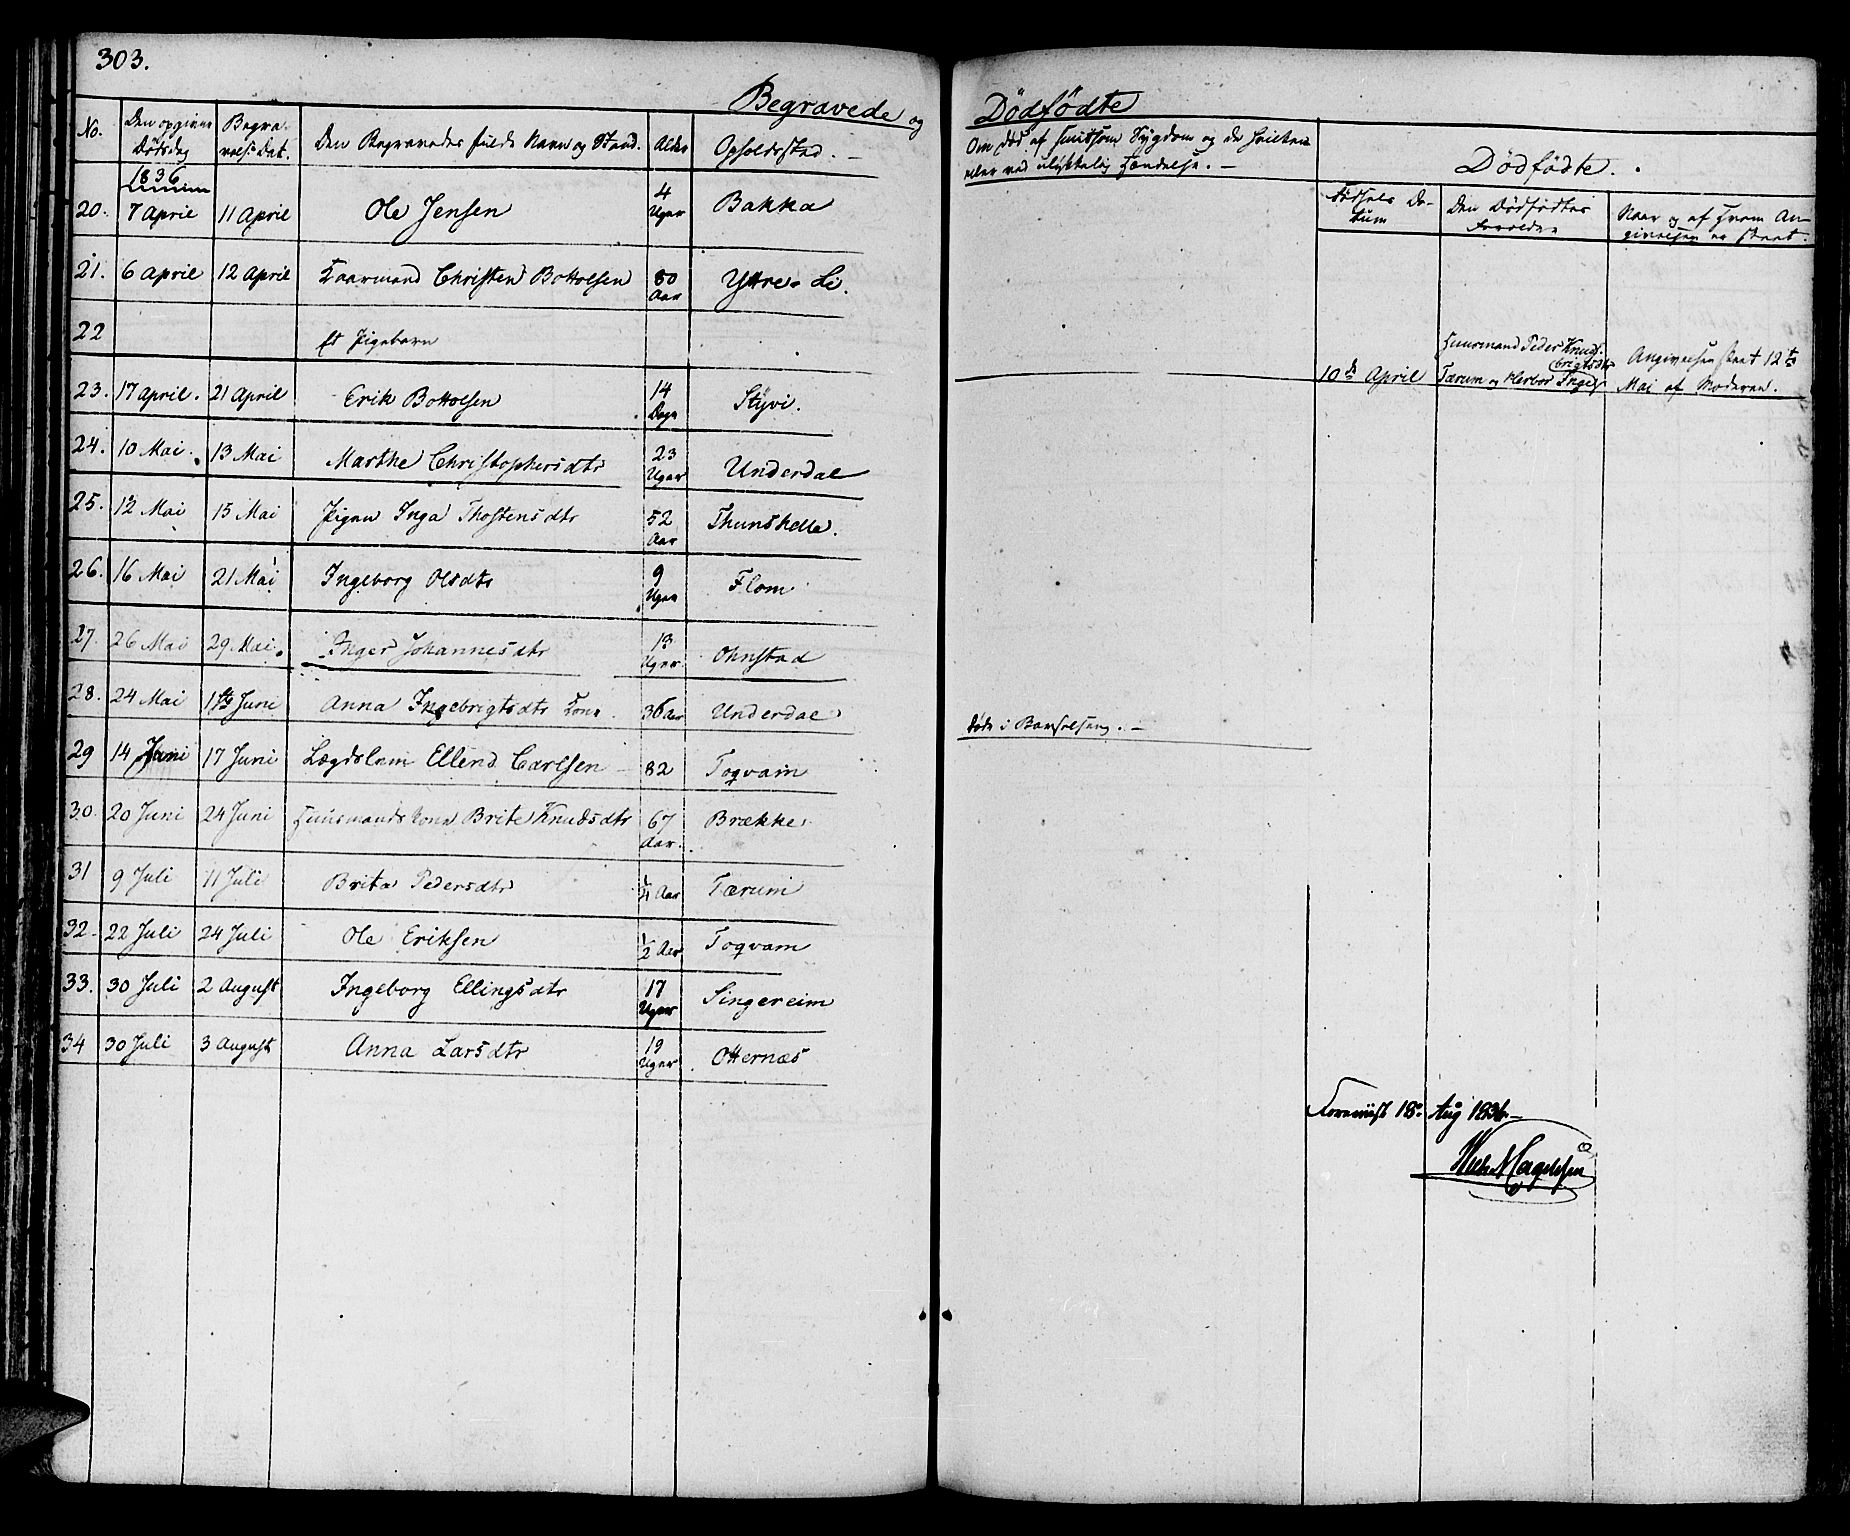 303.
Begravede og Dødfødte
No. Den opgivne Dødsdag Begravelses Dat. Den Begravedes fulde Navn og Stand. Alder Opholdssted. Om død af smitsom Sygdom og
eller ved ulykkelig Hændelse. Dødfødte.
Fødsels Datum Den Dødfødtes Forældre Naar og af Hvem Angivelsen er skeet.
1836
20. 7 April 11 April Ole Jensen 4 Uger Bakka
21. 6 April 12 April Kaarmand Christen Bottolsen 80 Aar Yttre Li.
22 et Pigebarn 10de April Huusmand Peder Knuds. Tærum og Herbor Ingebrigtsdtr Angivelsen skeet 12te Mai af Moderen.
23. 17 April. 21 April Erik Bottolsen 14 Dage Styvi.
24. 10 Mai. 13 Mai Marthe Christophersdtr 23 Uger Underdal
25. 12 Mai 15 Mai Pigen Inga Thostensdtr 52 Aar Thunshelle.
26. 16 Mai 21 Mai Ingeborg Olsdtr 9 Uger Flom
27. 26 Mai 29 Mai. Inger Johannesdtr 13 Uger Ohnstad
28. 24 Mai 1ste Juni Anna Ingebrigtsdtr Kone 36 Aar Underdal døde i Barselseng. —
29 14 Juni 17 Juni Lægdslem Ellend Carlsen 82 Toqvam
30. 20 Juni 24 Juni Huusmandskone Brite Knudsdtr 67 Aar. Brække
31 9 Juli 11 Juli Brita Pedersdtr 1/4 Aar Tærum
32. 22 Juli 24 Juli Ole Eriksen 1/2 Aar Toqvam
33. 30 Juli 2 August Ingeborg Ellingsdtr 17 Uger Singereim
34 30 Juli 3 August Anna Larsdtr 19 Uger Otternæs
Foreviist 18 Aug 1836